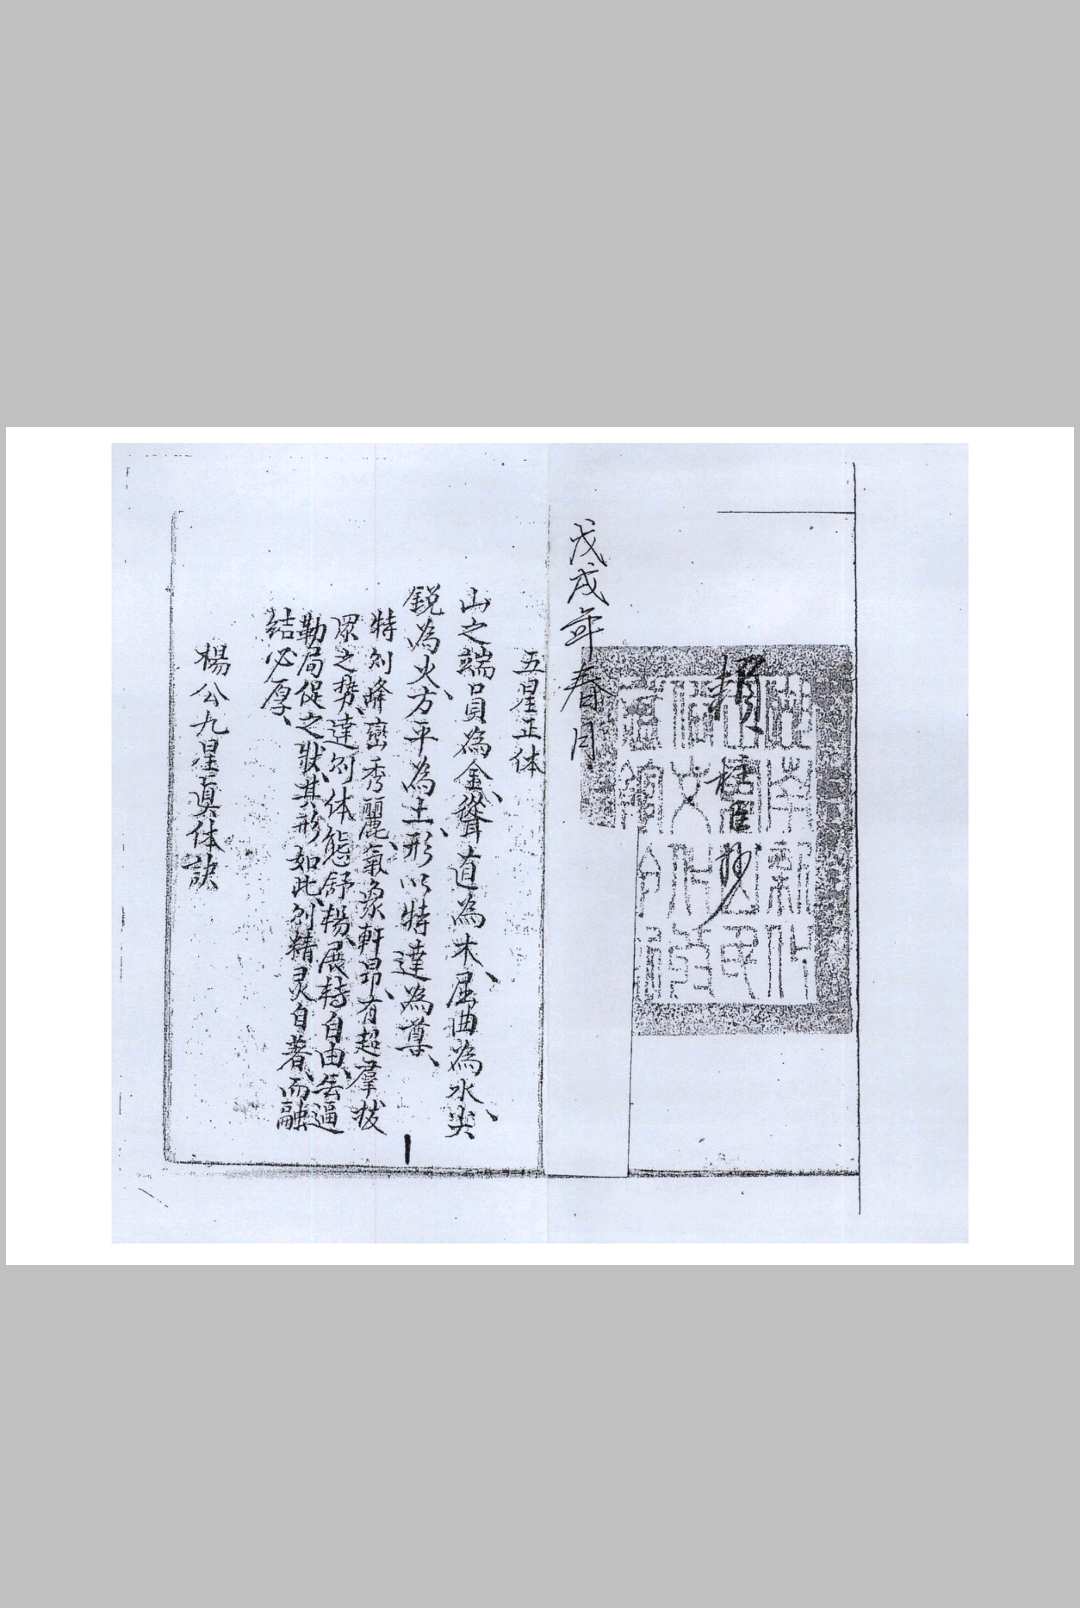 戊戌年春月
五星正体
山之端員為金、聳直為木、屈曲為水、尖
鋭為火、方平為土、形以特達為尊、
特則峰巒秀麗、氣象軒昂、有超羣拔
眾之勢、達則体態舒暢、展轉自由、無逼
勒局促之狀、其形如此、則精灵自著、而融
結必厚、
楊公九星真体訣